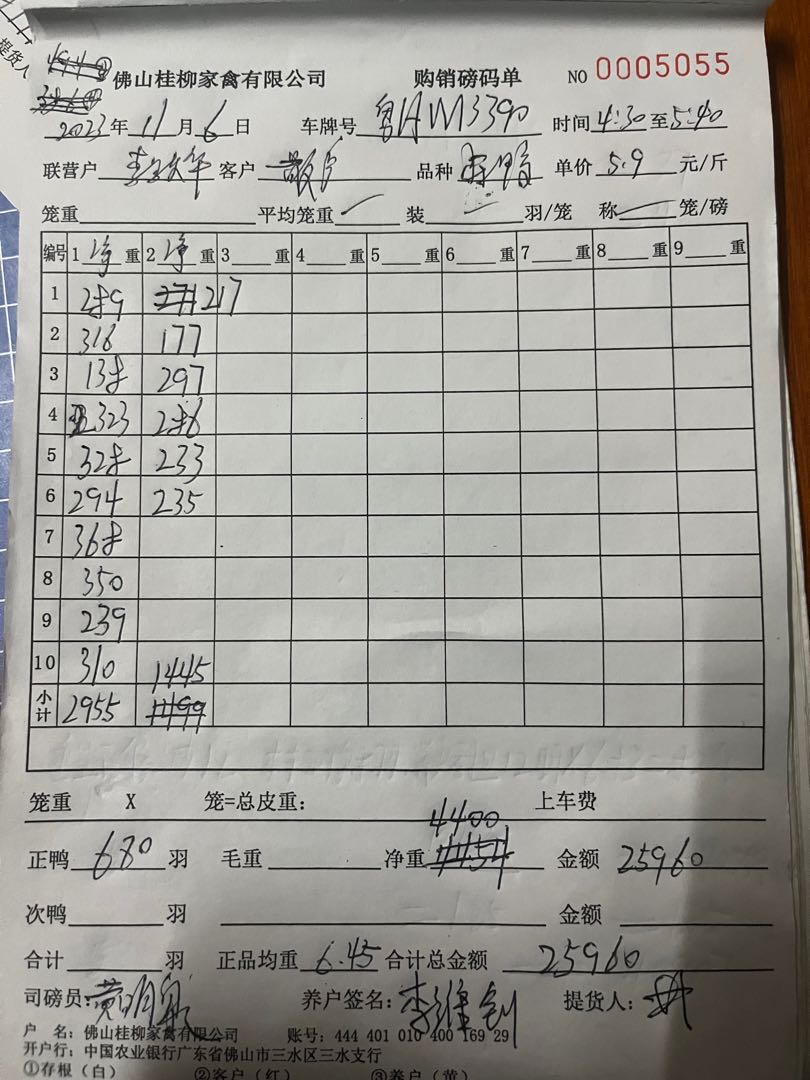 提货人
佛山桂柳家禽有限公司 购销磅码单 NO 0005055
2023年 11月 6日 车牌号 粤AM3390 时间 4:30至5:40
联营户 客户 品种 单价 5.9 元/斤
笼重 平均笼重 装 羽/笼 称 笼/磅
编号 1 净 重 2 净 重 3 重 4 重 5 重 6 重 7 重 8 重 9 重
1 289 217
2 316 177
3 138 297
4 323 286
5 328 233
6 294 235
7 368
8 350
9 239
10 310 1445
小计 2955
笼重 X 笼=总皮重: 上车费
4400
正鸭 680 羽 毛重 净重 金额 25960
次鸭 羽 金额
合计 羽 正品均重 6.45 合计总金额 25960
司磅员: 养户签名: 提货人:
户 名: 佛山桂柳家禽有限公司 账号: 444 401 010 400 169 29
开户行: 中国农业银行广东省佛山市三水区三水支行
①存根(白) ②客户(红) ③养户(黄)